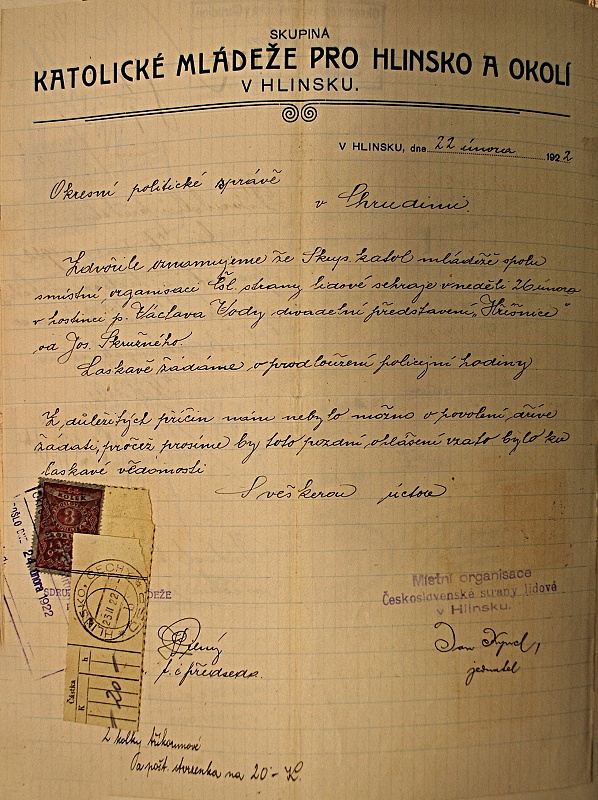 SKUPINA
KATOLICKÉ MLÁDEŽE PRO HLINSKO A OKOLÍ
V HLINSKU.
V HLINSKU, dne 22 února 1922
Okresní politické správě
v Chrudimi.
Zdvořile oznamujeme že Skup. katol mládeže spolu
s místní organisací Čsl. strany lidové sehraje v neděli 26 února
v hostinci p. Václava Vody divadelní představení „Hříšnice"
od Jos. Skružného.
Laskavě žádáme o prodloužení policejní hodiny
Z důležitých příčin nám nebylo možno o povolení dříve
žádati, pročež prosíme by toto pozdní ohlášení vzato bylo ku
laskavé vědomosti
S veškerou úctou
KOLEK
3
DOŠLO DNE 24. února 1922
HLINSKO ČECHY
23.II.22
Částka
K h
20 –
MLÁDEŽE
Místní organisace
Československé strany lidové
v Hlinsku.
t. č. předseda.
Jan
jednatel
2 kolky tříkorunové
Pa pošt. stvrzenka na 20·– K.